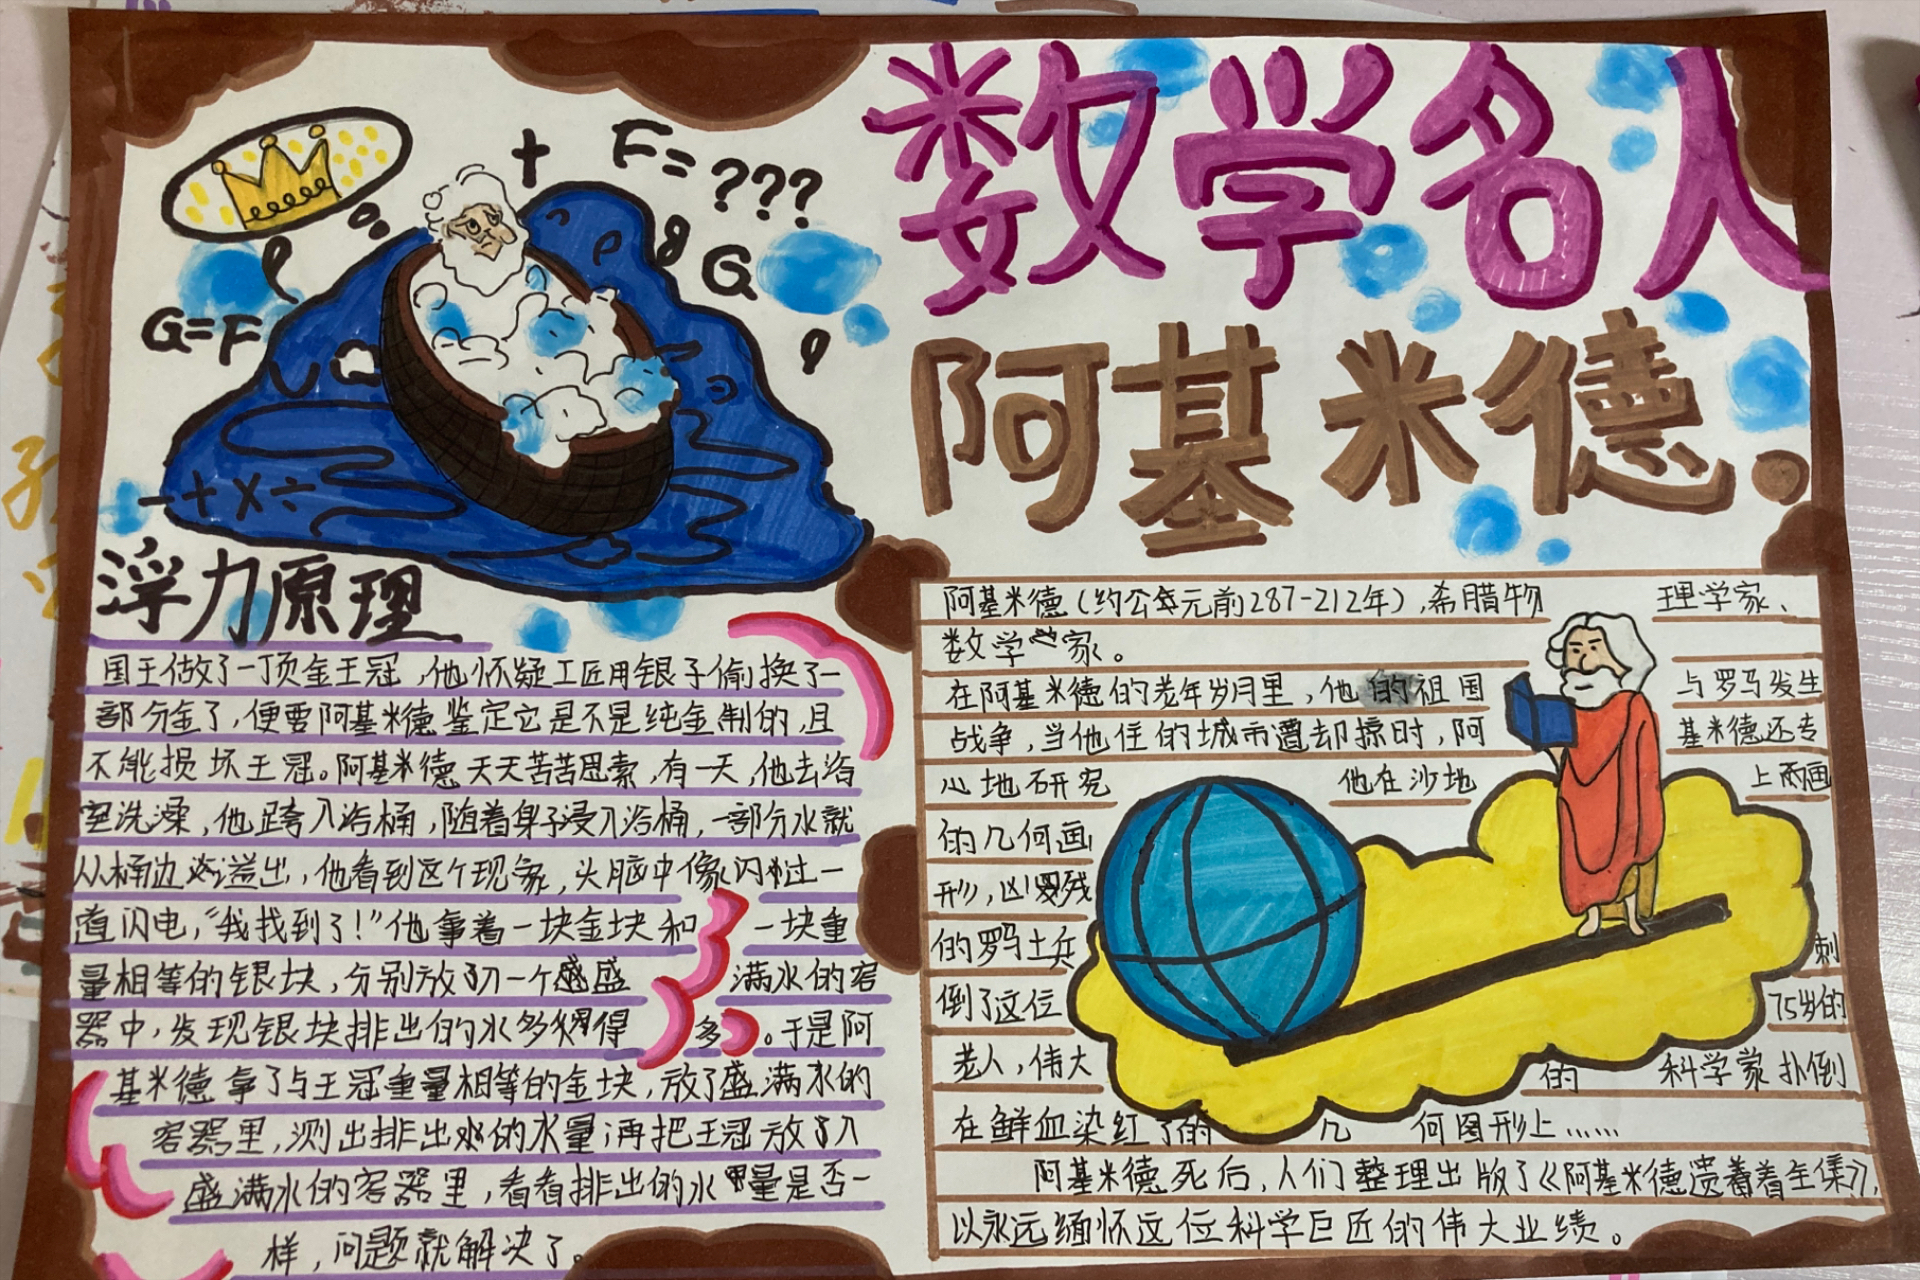 数学名人
阿基米德。
+ F=???
G
G=F
-+×÷
浮力原理
国王做了一顶金王冠,他怀疑工匠用银子偷换了一
部分金了,便要阿基米德鉴定它是不是纯金制的,且
不能损坏王冠。阿基米德天天苦苦思索,有一天,他去浴
室洗澡,他跨入浴桶,随着身子浸入浴桶,一部分水就
从桶边溢出,他看到这个现象,头脑中像闪过一
道闪电,“我找到了!”他拿着一块金块和一块重
量相等的银块,分别放入一个盛满水的容
器中,发现银块排出的水多得多。于是阿
基米德拿了与王冠重量相等的金块,放了盛满水的
容器里,测出排出水的水量;再把王冠放入
盛满水的容器里,看看排出的水量是否一
样,问题就解决了。
阿基米德(约公元前287-212年),希腊物理学家、
数学家。
在阿基米德的老年岁月里,他的祖国与罗马发生
战争,当他住的城市遭却掠时,阿基米德还专
心地研究他在沙地上画
的几何画
形,凶残
的罗马士兵刺
倒了这位75岁的
老人,伟大的科学家扑倒
在鲜血染红了的几何图形上……
阿基米德死后,人们整理出版了《阿基米德遗着全集》,
以永远缅怀这位科学巨匠的伟大业绩。